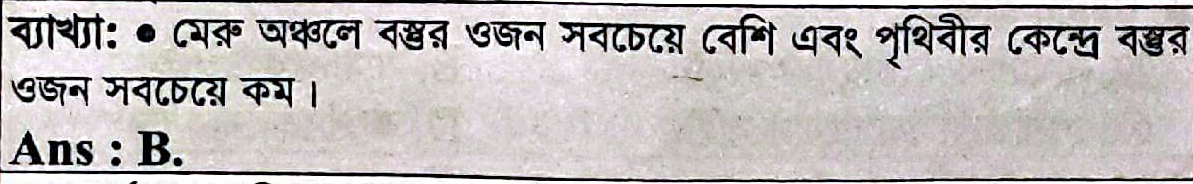 ব্যাখ্যা: ● মেরু অঞ্চলে বস্তুর ওজন সবচেয়ে বেশি এবং পৃথিবীর কেন্দ্রে বস্তুর
ওজন সবচেয়ে কম।
Ans : B.